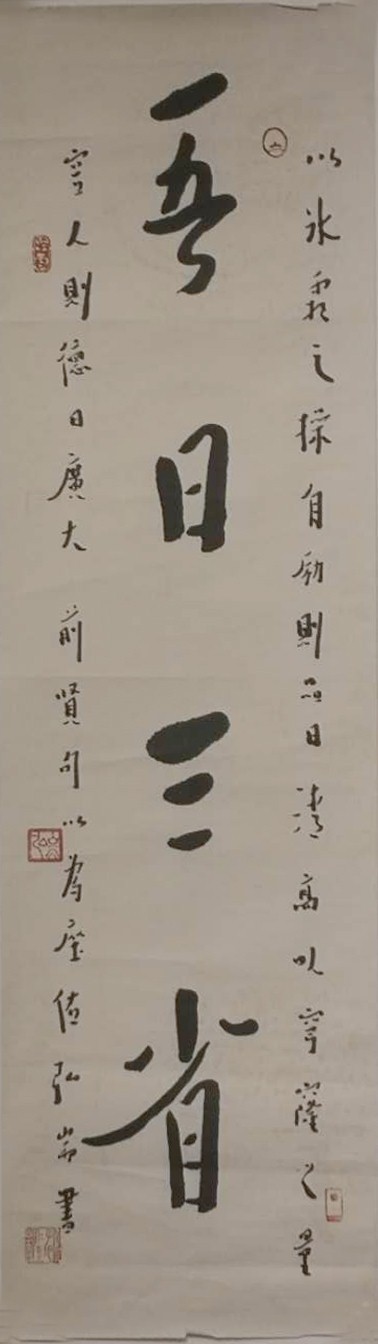 以冰霜之操自励則品日清高以穹窿之量
吾日三省
容人則德日廣大 前賢句以為座值弘耑書